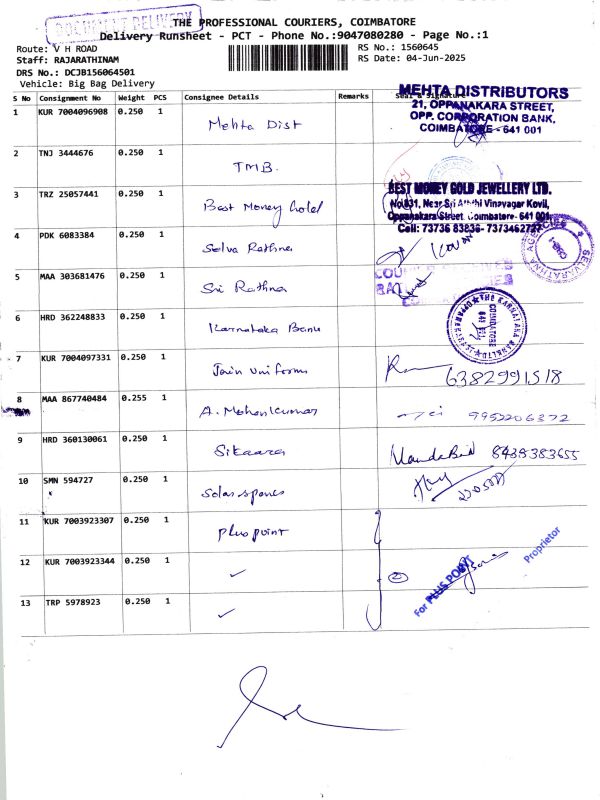 DOCUMENT DELIVERY
THE PROFESSIONAL COURIERS, COIMBATORE
Delivery Runsheet - PCT - Phone No.:9047080280 - Page No.:1
Route: V H ROAD
Staff: RAJARATHINAM
DRS No.: DCJB156064501
Vehicle: Big Bag Delivery
RS No.: 1560645
RS Date: 04-Jun-2025
S No Consignment No Weight PCS Consignee Details Remarks Seal & Signature
1 KUR 7004096908 0.250 1 Mehta Dist
MEHTA DISTRIBUTORS
21, OPPANAKARA STREET,
OPP. CORPORATION BANK,
COIMBATORE - 641 001
2 TNJ 3444676 0.250 1 TMB.
3 TRZ 25057441 0.250 1 Best Money Gold
BEST MONEY GOLD JEWELLERY LTD.
No:831, Near Sri Aththi Vinayagar Kovil,
Oppanakara Street, Coimbatore- 641 001.
Cell: 73736 83836- 7373462727
4 PDK 6083384 0.250 1 Selva Rathna
SELVARATHNA AGENCIES
5 MAA 303681476 0.250 1 Sri Rathna
6 HRD 362248833 0.250 1 Karnataka Bank
THE KARNATAKA BANK LTD
COIMBATORE
7 KUR 7004097331 0.250 1 Jain Uniforms 6382991518
8 MAA 867740484 0.255 1 A. Mohankumar 9952206372
9 HRD 360130061 0.250 1 Sikaara 8438383655
10 SMN 594727 0.250 1 Solar spares
11 KUR 7003923307 0.250 1 Plus point
12 KUR 7003923344 0.250 1 ✓ 2
For PLUS POINT
Proprietor
13 TRP 5978923 0.250 1 ✓